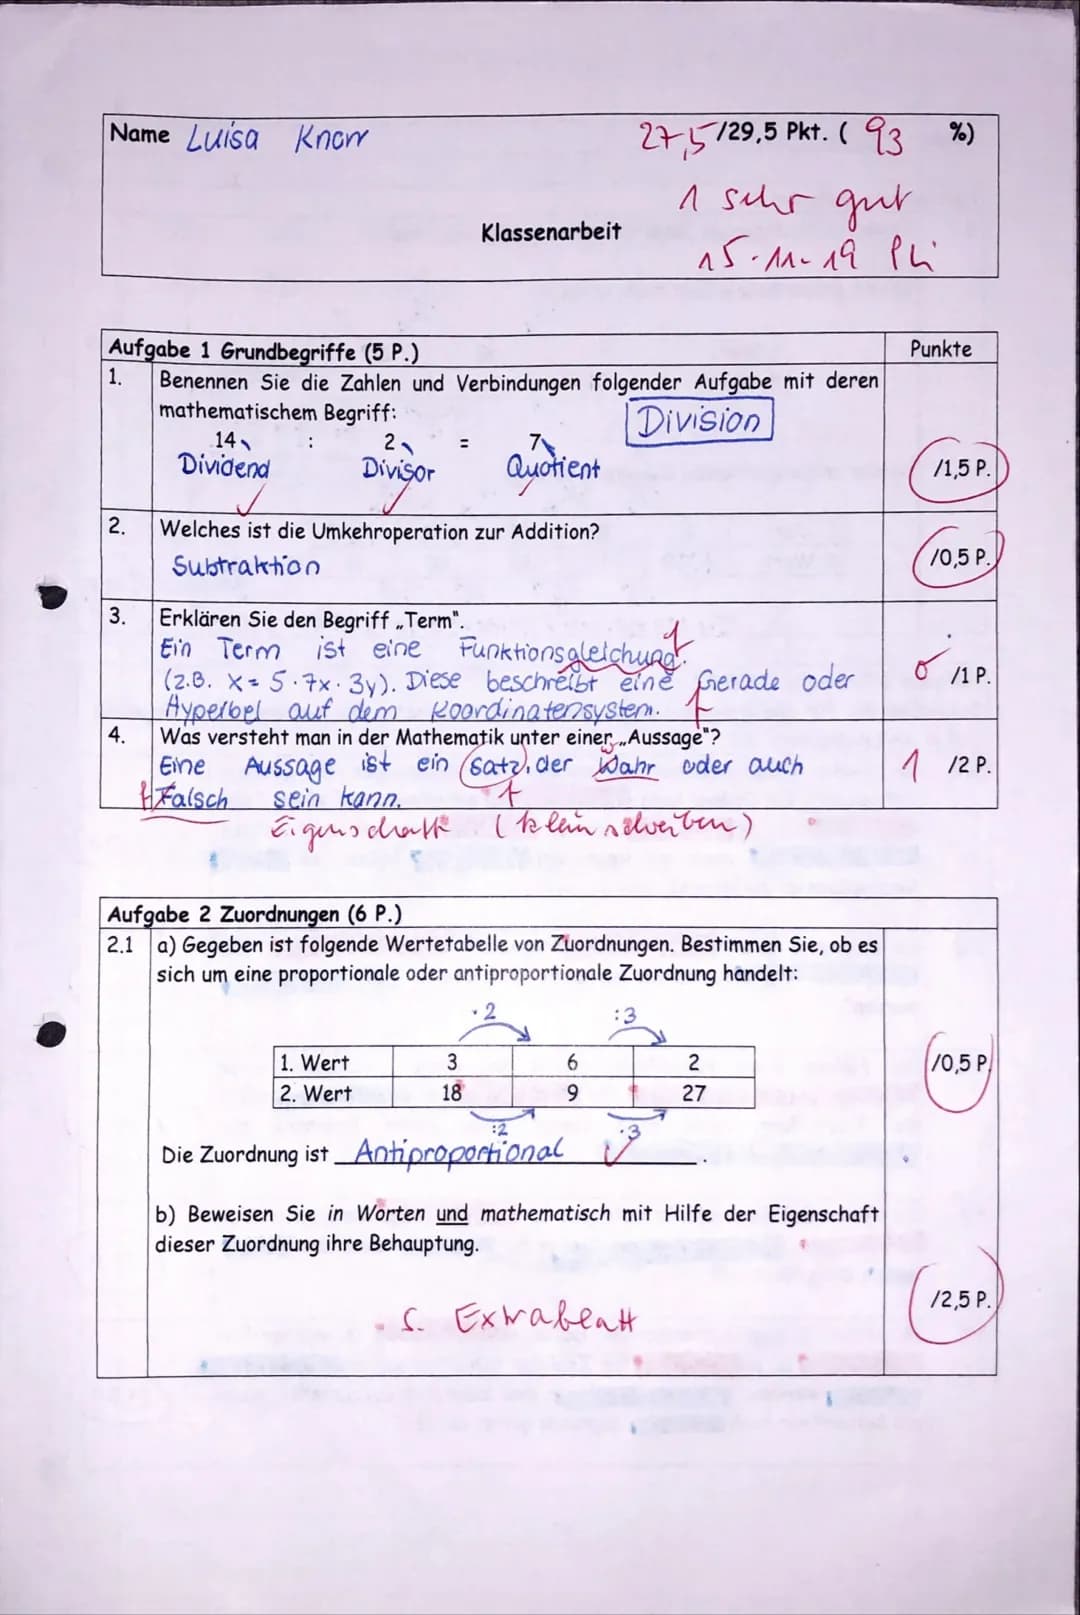 Name Luisa Knorr 27,5/29,5 Pkt. ( 93 %)
1 sehr gut
Klassenarbeit
15.11.19
Aufgabe 1 Grundbegriffe (5 P.) Punkte
1. Benennen Sie die Zahlen und Verbindungen folgender Aufgabe mit deren
mathematischem Begriff: Division
14 : 2 = 7
Dividend Divisor Quotient /1,5 P.
2. Welches ist die Umkehroperation zur Addition?
Subtraktion /0,5 P.
3. Erklären Sie den Begriff „Term".
Ein Term ist eine Funktionsgleichung. f
(z.B. x = 5·7x·3y). Diese beschreibt eine Gerade oder 0 /1 P.
Hyperbel auf dem Koordinatensystem. f
4. Was versteht man in der Mathematik unter einer „Aussage"?
Eine Aussage ist ein Satz, der Wahr oder auch 1 /2 P.
f Falsch sein kann. f
Eigenschaft (klein schreiben)
Aufgabe 2 Zuordnungen (6 P.)
2.1 a) Gegeben ist folgende Wertetabelle von Zuordnungen. Bestimmen Sie, ob es
sich um eine proportionale oder antiproportionale Zuordnung handelt:
·2 :3
1. Wert 3 6 2 /0,5 P.
2. Wert 18 9 27
:2 ·3
Die Zuordnung ist Antiproportional.
b) Beweisen Sie in Worten und mathematisch mit Hilfe der Eigenschaft
dieser Zuordnung ihre Behauptung.
/2,5 P.
s. Extrablatt